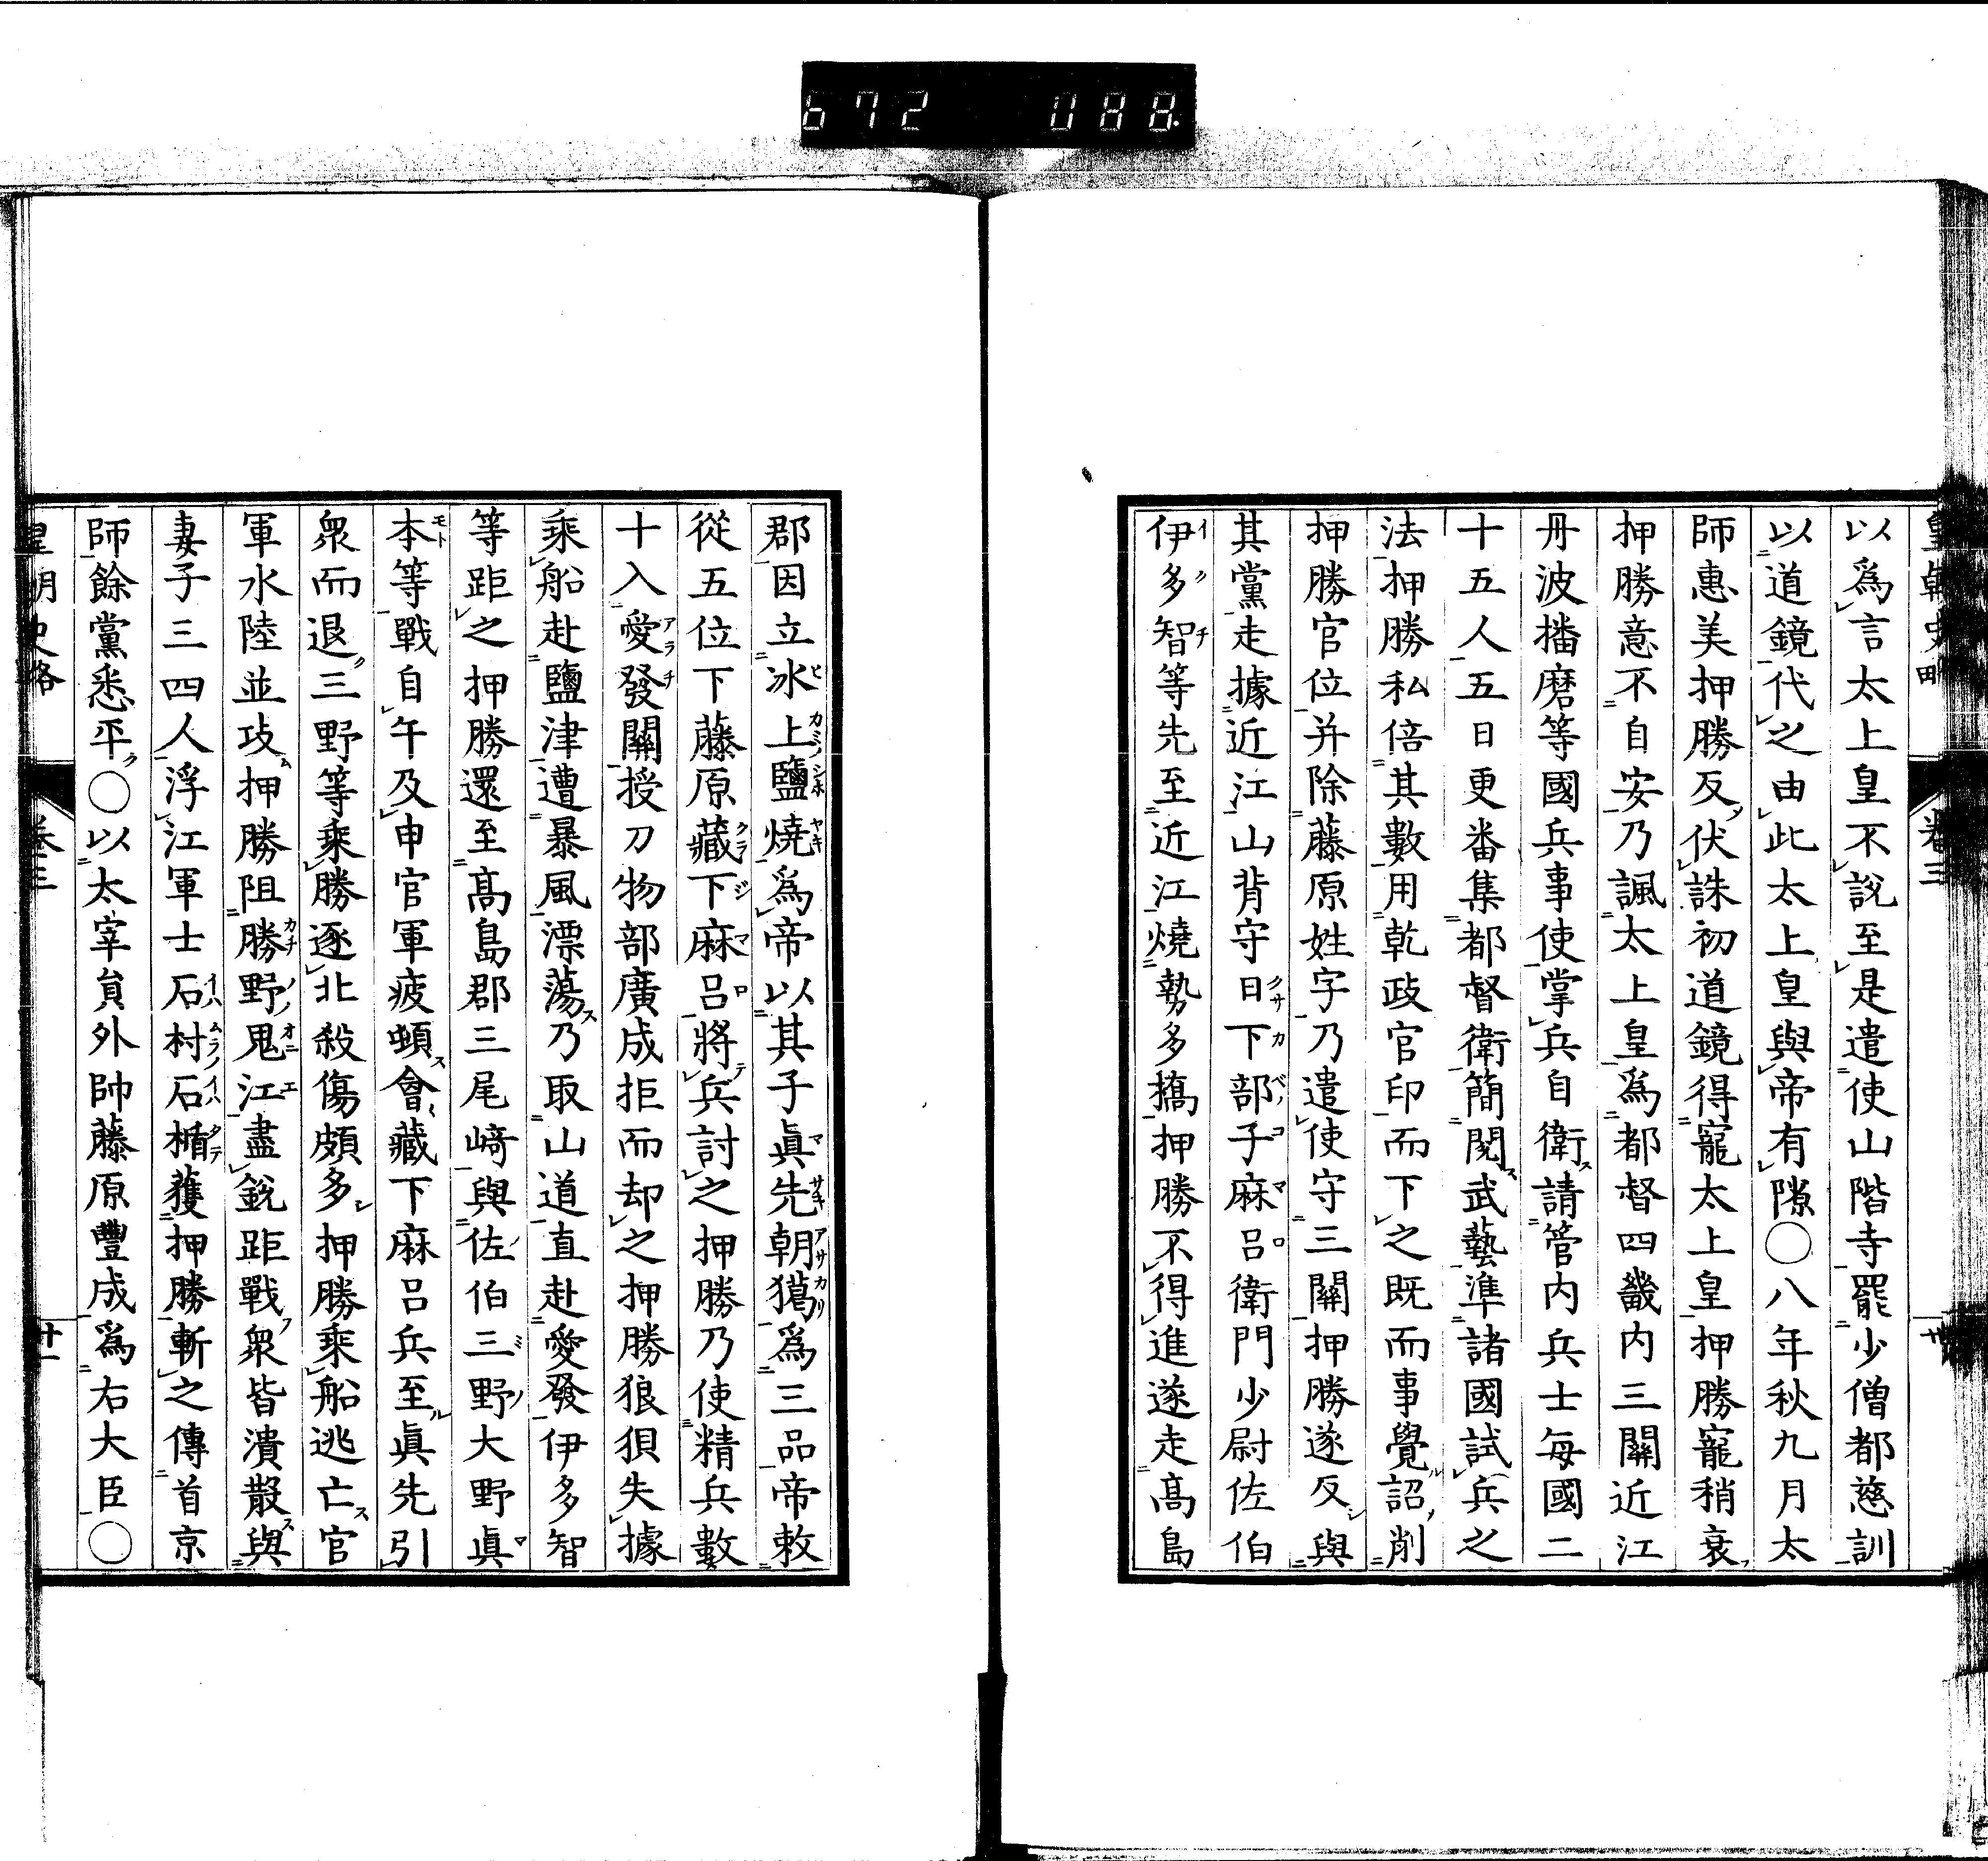 672 088
皇朝史略 卷三
以爲言太上皇不說至是遣使山階寺罷少僧都慈訓
以道鏡代之由此太上皇與帝有隙〇八年秋九月太
師惠美押勝反伏誅初道鏡得寵太上皇押勝寵稍衰
押勝意不自安乃諷太上皇爲都督四畿内三關近江
丹波播磨等國兵事使掌兵自衛請管内兵士每國二
十五人五日更畨集都督衛簡閱武藝準諸國試兵之
法押勝私倍其數用乾政官印而下之既而事覺詔削
押勝官位并除藤原姓字乃遣使守三關押勝遂反與
其黨走據近江山背守日下部子麻呂衛門少尉佐伯
伊多智等先至近江燒勢多橋押勝不得進遂走髙島
郡因立氷上鹽燒爲帝以其子眞先朝獦爲三品帝敕
從五位下藤原藏下麻呂將兵討之押勝乃使精兵數
十入愛發關授刀物部廣成拒而却之押勝狼狽失據
乘船赴鹽津遭暴風漂蕩乃取山道直赴愛發伊多智
等距之押勝還至髙島郡三尾﨑與佐伯三野大野眞
本等戰自午及申官軍疲頓會藏下麻呂兵至眞先引
衆而退三野等乘勝逐北殺傷頗多押勝乘船逃亡官
軍水陸並攻押勝阻勝野鬼江盡銳距戰衆皆潰散與
妻子三四人浮江軍士石村石楯獲押勝斬之傳首京
師餘黨悉平〇以太宰員外帥藤原豐成爲右大臣〇
皇朝史略 卷三 廿一